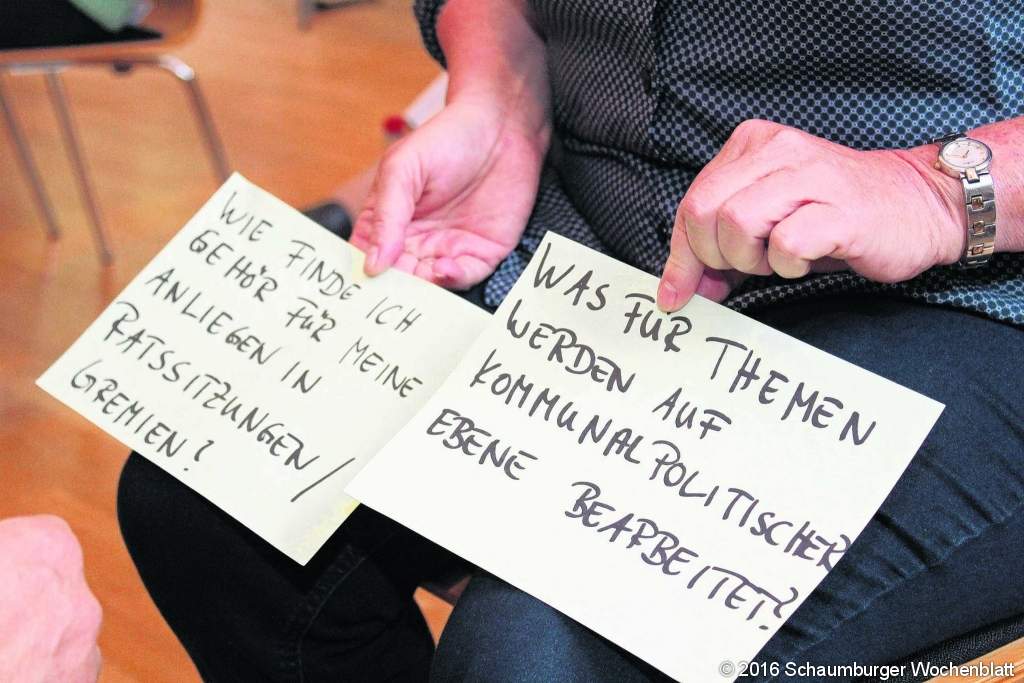 WIE FINDE ICH
GEHÖR FÜR MEINE
ANLIEGEN IN
RATSSITZUNGEN/
GREMIEN?
WAS FÜR THEMEN
WERDEN AUF
KOMMUNALPOLITISCHER
EBENE BEARBEITET?
© 2016 Schaumburger Wochenblatt